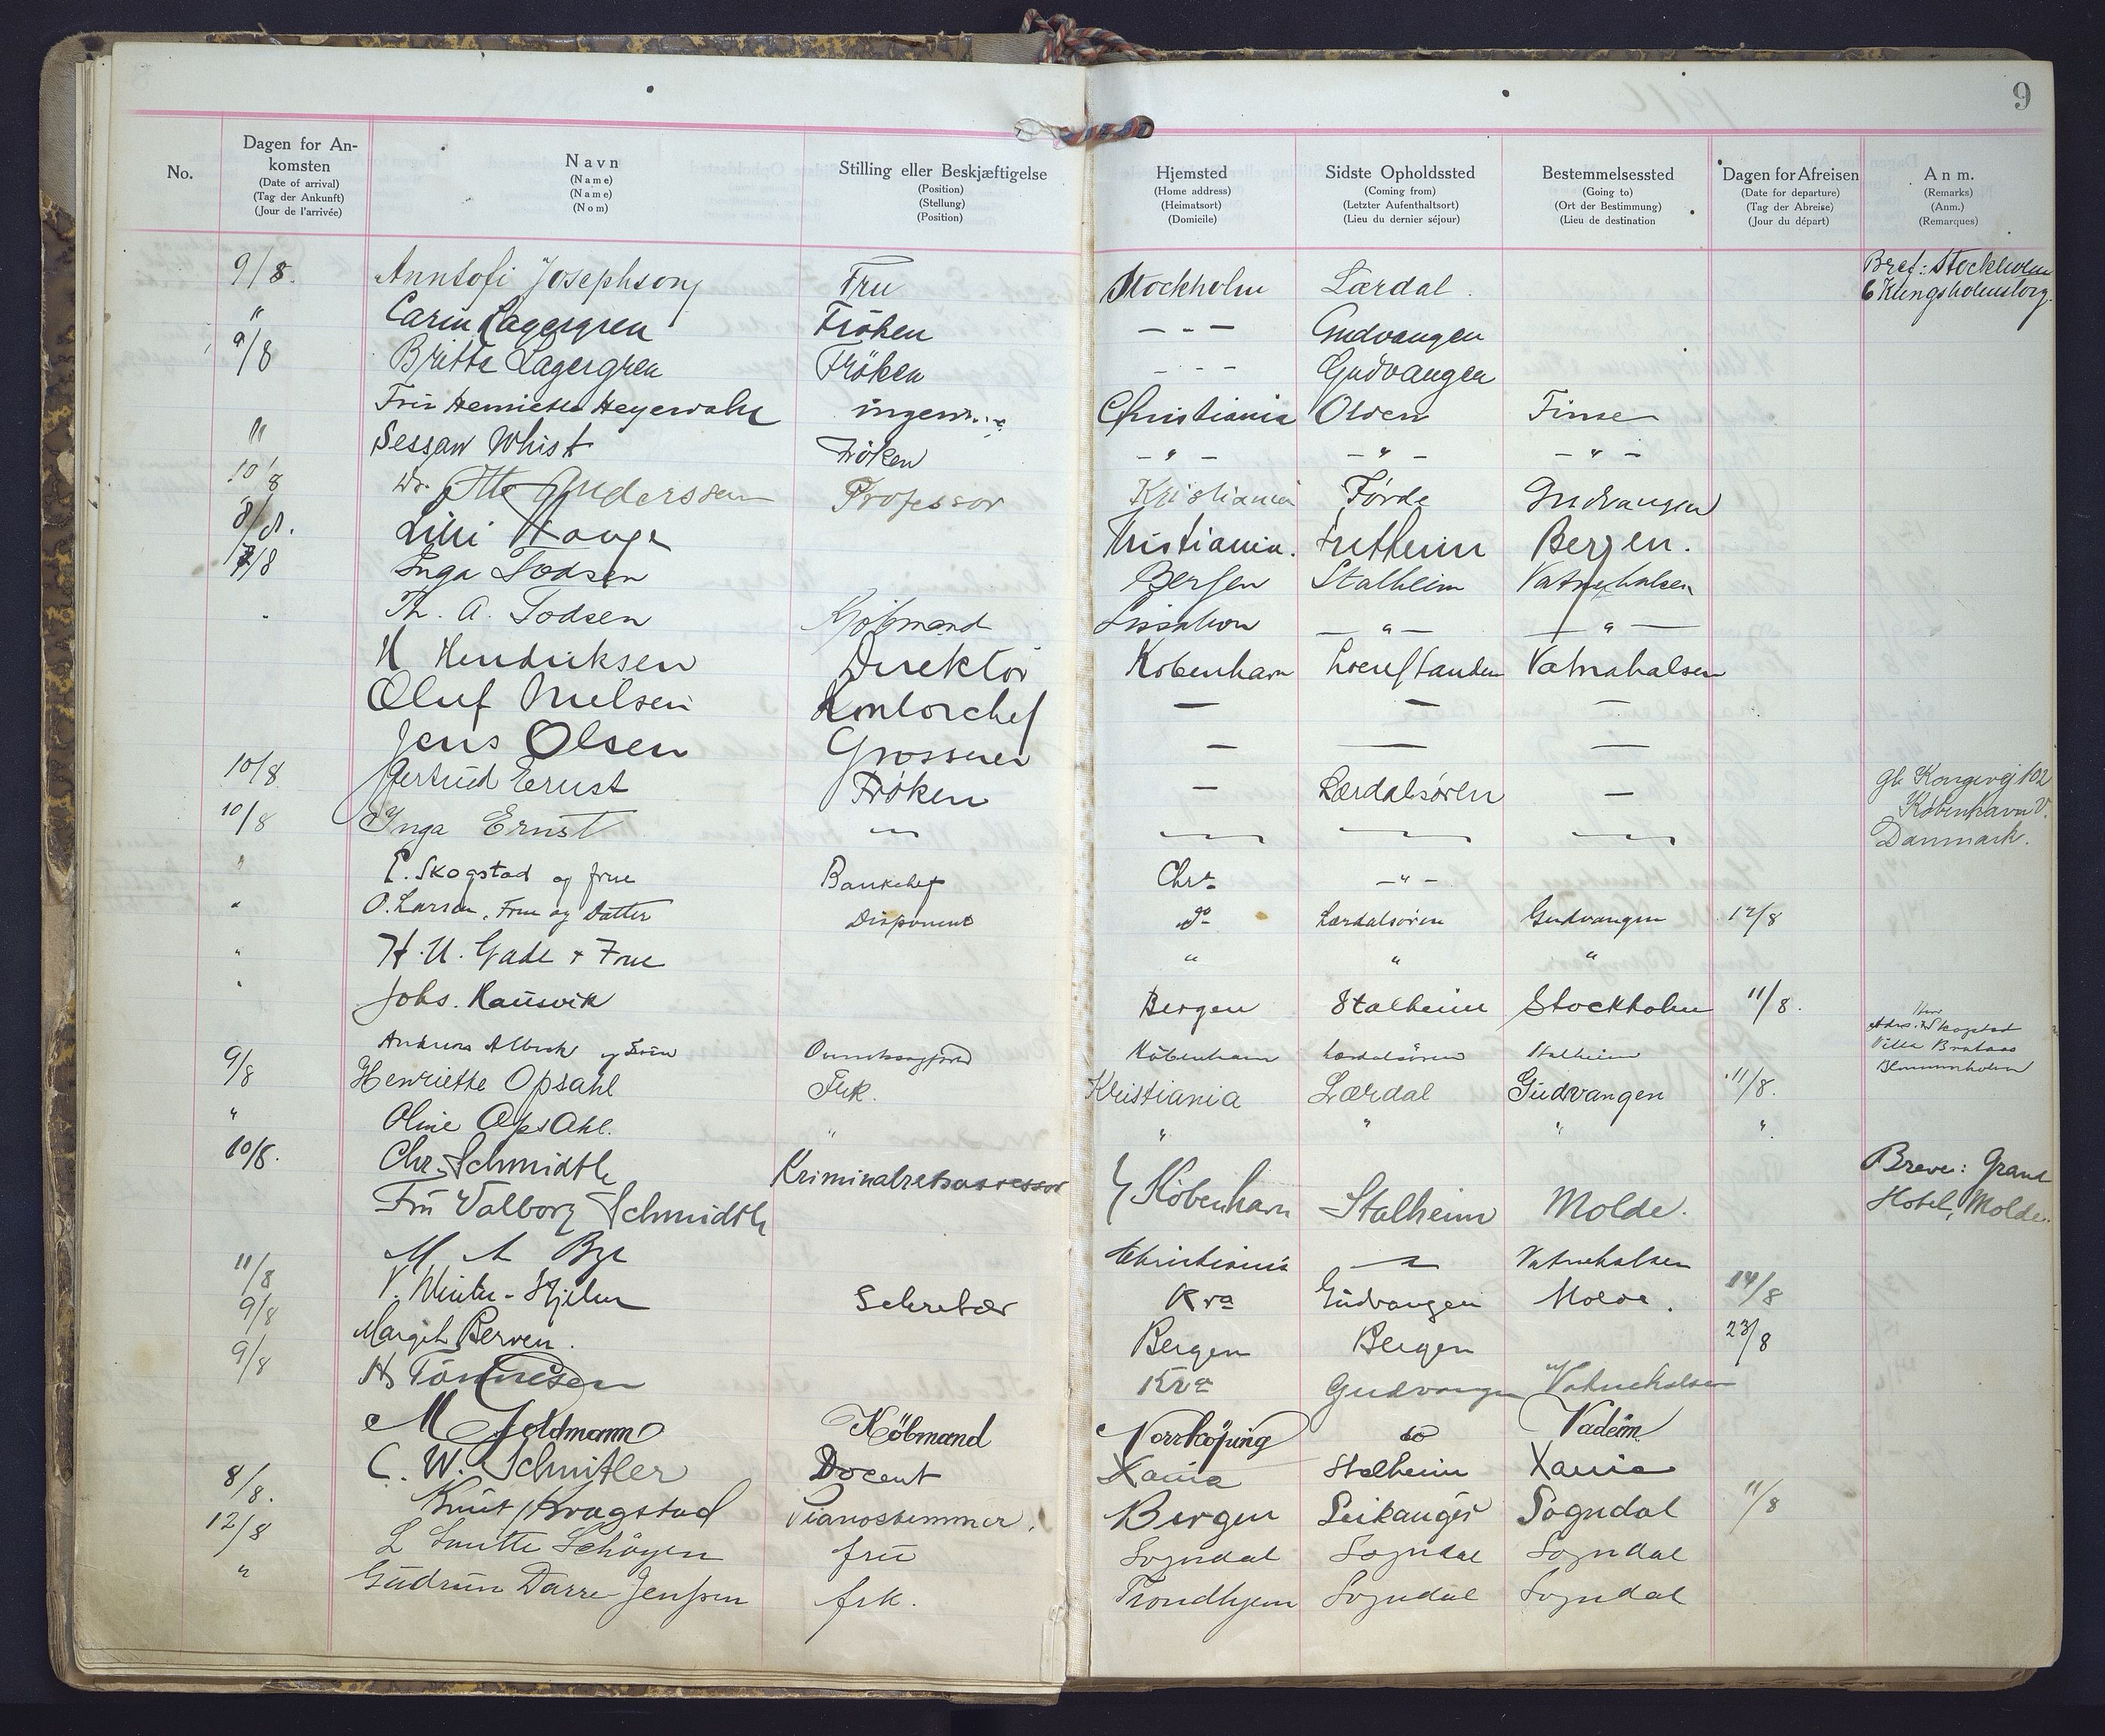 9
No. Dagen for An-komsten Navn Stilling eller Beskjæftigelse Hjemsted Sidste Opholdssted Bestemmelsessted Dagen for Afreisen Anm.
(Date of arrival) (Name) (Position) (Home address) (Coming from) (Going to) (Date for departure) (Remarks)
(Tag der Ankunft) (Name) (Stellung) (Heimatsort) (Letzter Aufenthaltsort) (Ort der Bestimmung) (Tag der Abreise) (Anm.)
(Jour de l'arrivée) (Nom) (Position) (Domicile) (Lieu du dernier séjour) (Lieu de destination (Jour du départ) (Remarques)
9/8. Josephson Fru Stockholm Lærdal. Bref: Stockholm
6 Kungsholmstorg.
" Carin Lagergren Fröken — - — Gudvangen
9/8 Britta Lagergren Fröken - - - Gudvangen
Fru Henriette Christiania Finse
" Whist Fröken - " - - " - - " -
10/8 Dr. Otto Anderssen Professor Kristiania Førde Gudvangen
8/8. Lilli Hauge Kristiania. Fretheim Bergen.
7/8 Inga Todsen Bergen Stalheim Vatnehalsen
Th. A. Todsen Kjøbmand Lissabon — " — — " —
H Hendriksen Direktør København Vatnahalsen
Oluf Nielsen Kontorchef — — —
Jens Olsen Grosserer — — —
10/8 Gertrud Ernst Frøken — Lærdalsøren — Gl. Kongevej 102
10/8 Inga Ernst — — — — København V.
Danmark.
" E. Skogstad og frue Bankchef Chra - " -
" O. Larsen, Frue og Datter Disponent do Lærdalsören Gudvangen 12/8
" H. U. Gade + Frue " " "
" Johs. Rausvik Bergen Stalheim Stockholm 11/8.
Andreas og København Lærdalsören Stalheim Skogstad
Villa
9/8 Henriette Opsahl Frk. Kristiania Lærdal Gudvangen 11/8.
" Oline Opsahl. " " " " ".
10/8. Chr. Schmidth Kriminalretsassessor København Stalheim Molde. Breve: Grand
Fru Valborg Schmidth Hotel, Molde.
M A Bye Christiania — Vatnehalsen
11/8 V. Winter-Hjelm Sekretær Kra Gudvangen Molde. 14/8
9/8 Margit Berven. Bergen Bergen 23/8
9/8 H. Tønnesen Kra Gudvangen Vatnehalsen
M Goldmann Köbmand Norrköping do
C. W. Schnitler Docent Xania Stalheim Xania
8/8. Knut Krogstad Pianostemmer. Bergen Leikanger Sogndal 11/8
12/8 L Smitte Schøyen fru Sogndal Sogndal Sogndal
" Gudrun Darre-Jenssen frk. Trondhjem Sogndal Sogndal